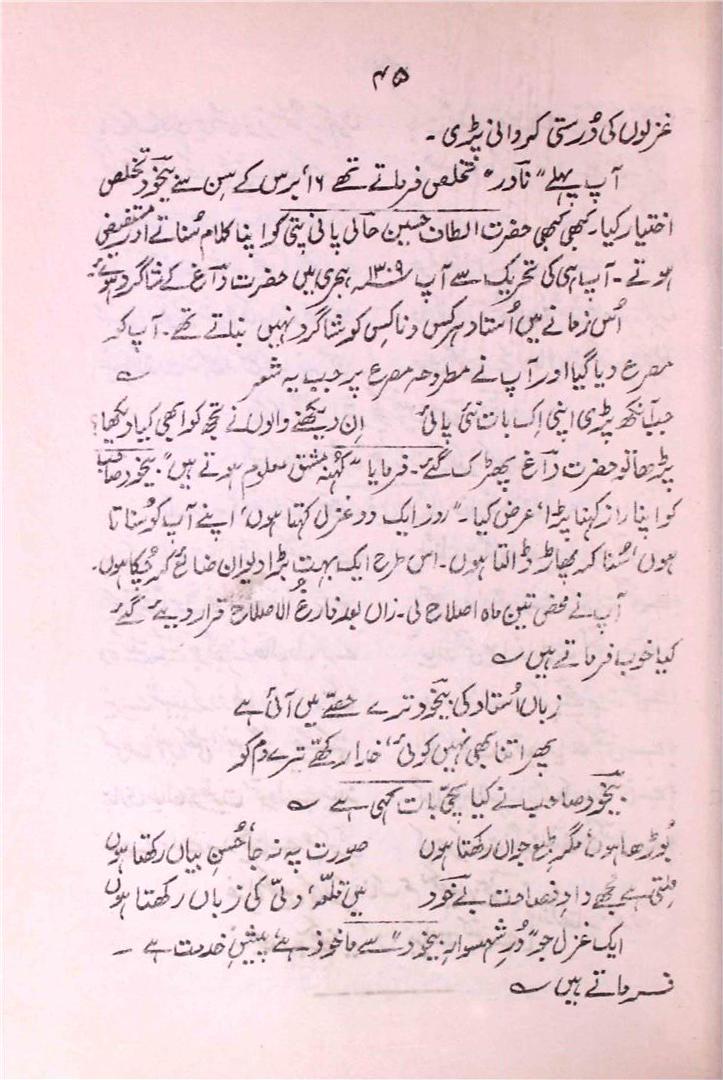 ۴۵
غزلوں کی دُرستی کروانی پڑی ۔
آپ پہلے "نادر" تخلص فرماتے تھے ۱۶ برس کے سِن سے بیخود تخلص
اختیار کیا۔ کبھی کبھی حضرت الطاف حسین حالی پانی پتی کو اپنا کلام سُناتے اور مستفیض
ہوتے ۔ آپ ہی کی تحریک سے آپ ۱۳۰۹ ہجری میں حضرت داغ کے شاگرد ہوئے۔
اُس زمانے میں اُستاد ہرکس و ناکس کو شاگرد نہیں بناتے تھے ۔ آپ کو
مصرع دیا گیا اور آپ نے مطروحہ مصرع پر جب یہ شعر ؎
جب آنکھ پڑی اپنی اِک بات نئی پائی اِن دیکھنے والوں نے تجھ کو ابھی کیا دیکھا؟
پڑھا تو حضرت داغ پھڑک گئے۔ فرمایا "کہنہ مشق معلوم ہوتے ہیں" بیخود صاحب
کو اپنا راز کہنا پڑا، عرض کیا۔ "روز ایک دو غزل کہتا ہوں، اپنے آپ کو سُناتا
ہوں، سُنا کر پھاڑ ڈالتا ہوں۔ اس طرح ایک بہت بڑا دیوان ضائع کر چکا ہوں۔
آپ نے محض تین ماہ اصلاح لی۔ زاں بعد فارغُ الاصلاح قرار دیے گئے
کیا خوب فرماتے ہیں ؎
زباں اُستاد کی بیخود ترے حصّے میں آئی ہے
پھر اتنا بھی نہیں کوئی، خدا رکھّے ترے دم کو
بیخود صاحب نے کیا سچّی بات کہی ہے ؎
بُوڑھا ہوں مگر طبع جواں رکھتا ہوں صورت پہ نہ جا، حُسنِ بیاں رکھتا ہوں
مِلتی ہے مجھے دادِ فصاحت بے خود میں قلعہ، دلّی کی زباں رکھتا ہوں
ایک غزل جو "دُرِ شہسوارِ بیخود" سے ماخوذ ہے پیشِ خدمت ہے ۔
فرماتے ہیں ؎